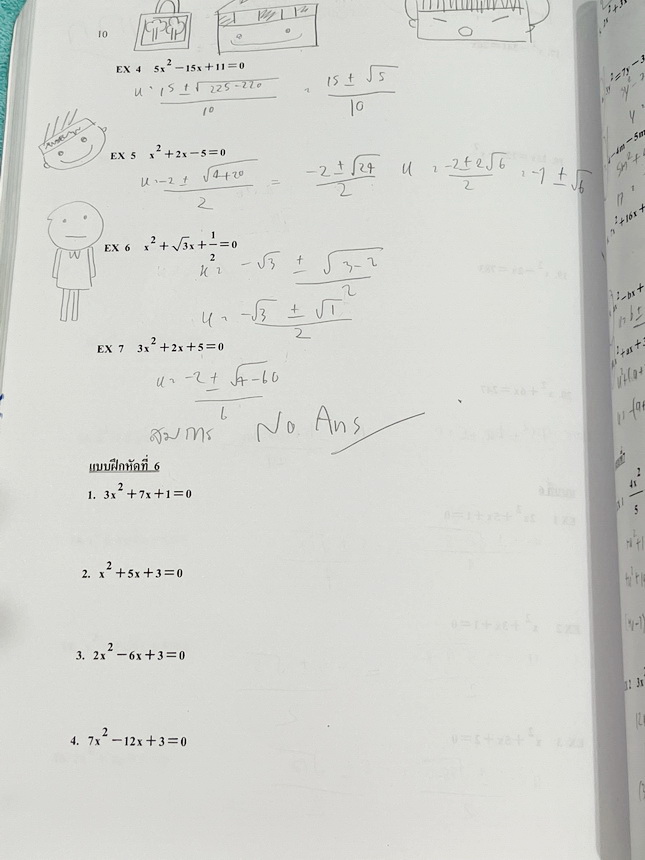 10
EX 4 5x² −15x+11=0
x = (15 ± √225−220)/10 = (15 ± √5)/10
EX 5 x² +2x−5=0
x = (−2 ± √4+20)/2 = (−2 ± √24)/2 x = (−2 ± 2√6)/2 = −1 ± √6
EX 6 x² +√3x+1/2=0
x = (−√3 ± √3−2)/2
x = (−√3 ± √1)/2
EX 7 3x² +2x+5=0
x = (−2 ± √4−60)/6
สมการ No Ans
แบบฝึกหัดที่ 6
1. 3x² +7x+1=0
2. x² +5x+3=0
3. 2x² −6x+3=0
4. 7x² −12x+3=0